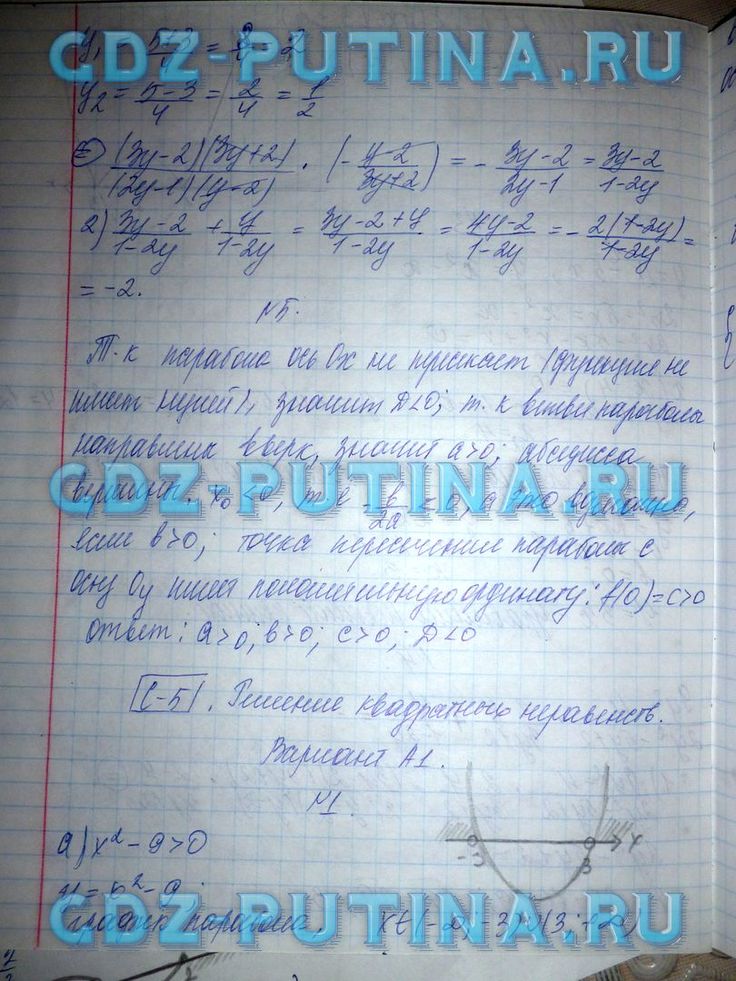 y₁ = (5+3)/4 = 8/4 = 2
GDZ-PUTINA.RU
y₂ = (5-3)/4 = 2/4 = 1/2
= (3y-2)(3y+2)/((2y-1)(y-2)) · (-(y-2)/(3y+2)) = -(3y-2)/(2y-1) = (3y-2)/(1-2y)
2) (3y-2)/(1-2y) + y/(1-2y) = (3y-2+y)/(1-2y) = (4y-2)/(1-2y) = -2(1-2y)/(1-2y) =
= -2.
№5.
Т.к парабола ось Ox не пересекает (функция не
имеет нулей), значит D<0; т.к ветви параболы
направлены вверх, значит a>0; абсцисса
GDZ-PUTINA.RU
вершины x₀<0, т.е -b/2a < 0, а это возможно,
если b>0; точка пересечения параболы с
осью Oy имеет положительную ординату: f(0)=c>0
ответ: a>0; b>0; c>0; D<0
С-5. Решение квадратных неравенств.
Вариант А1.
№1.
а) x²-9>0
-3 3 x
y = x²-9
GDZ-PUTINA.RU
график парабола. x∈(-∞;-3)∪(3;+∞)